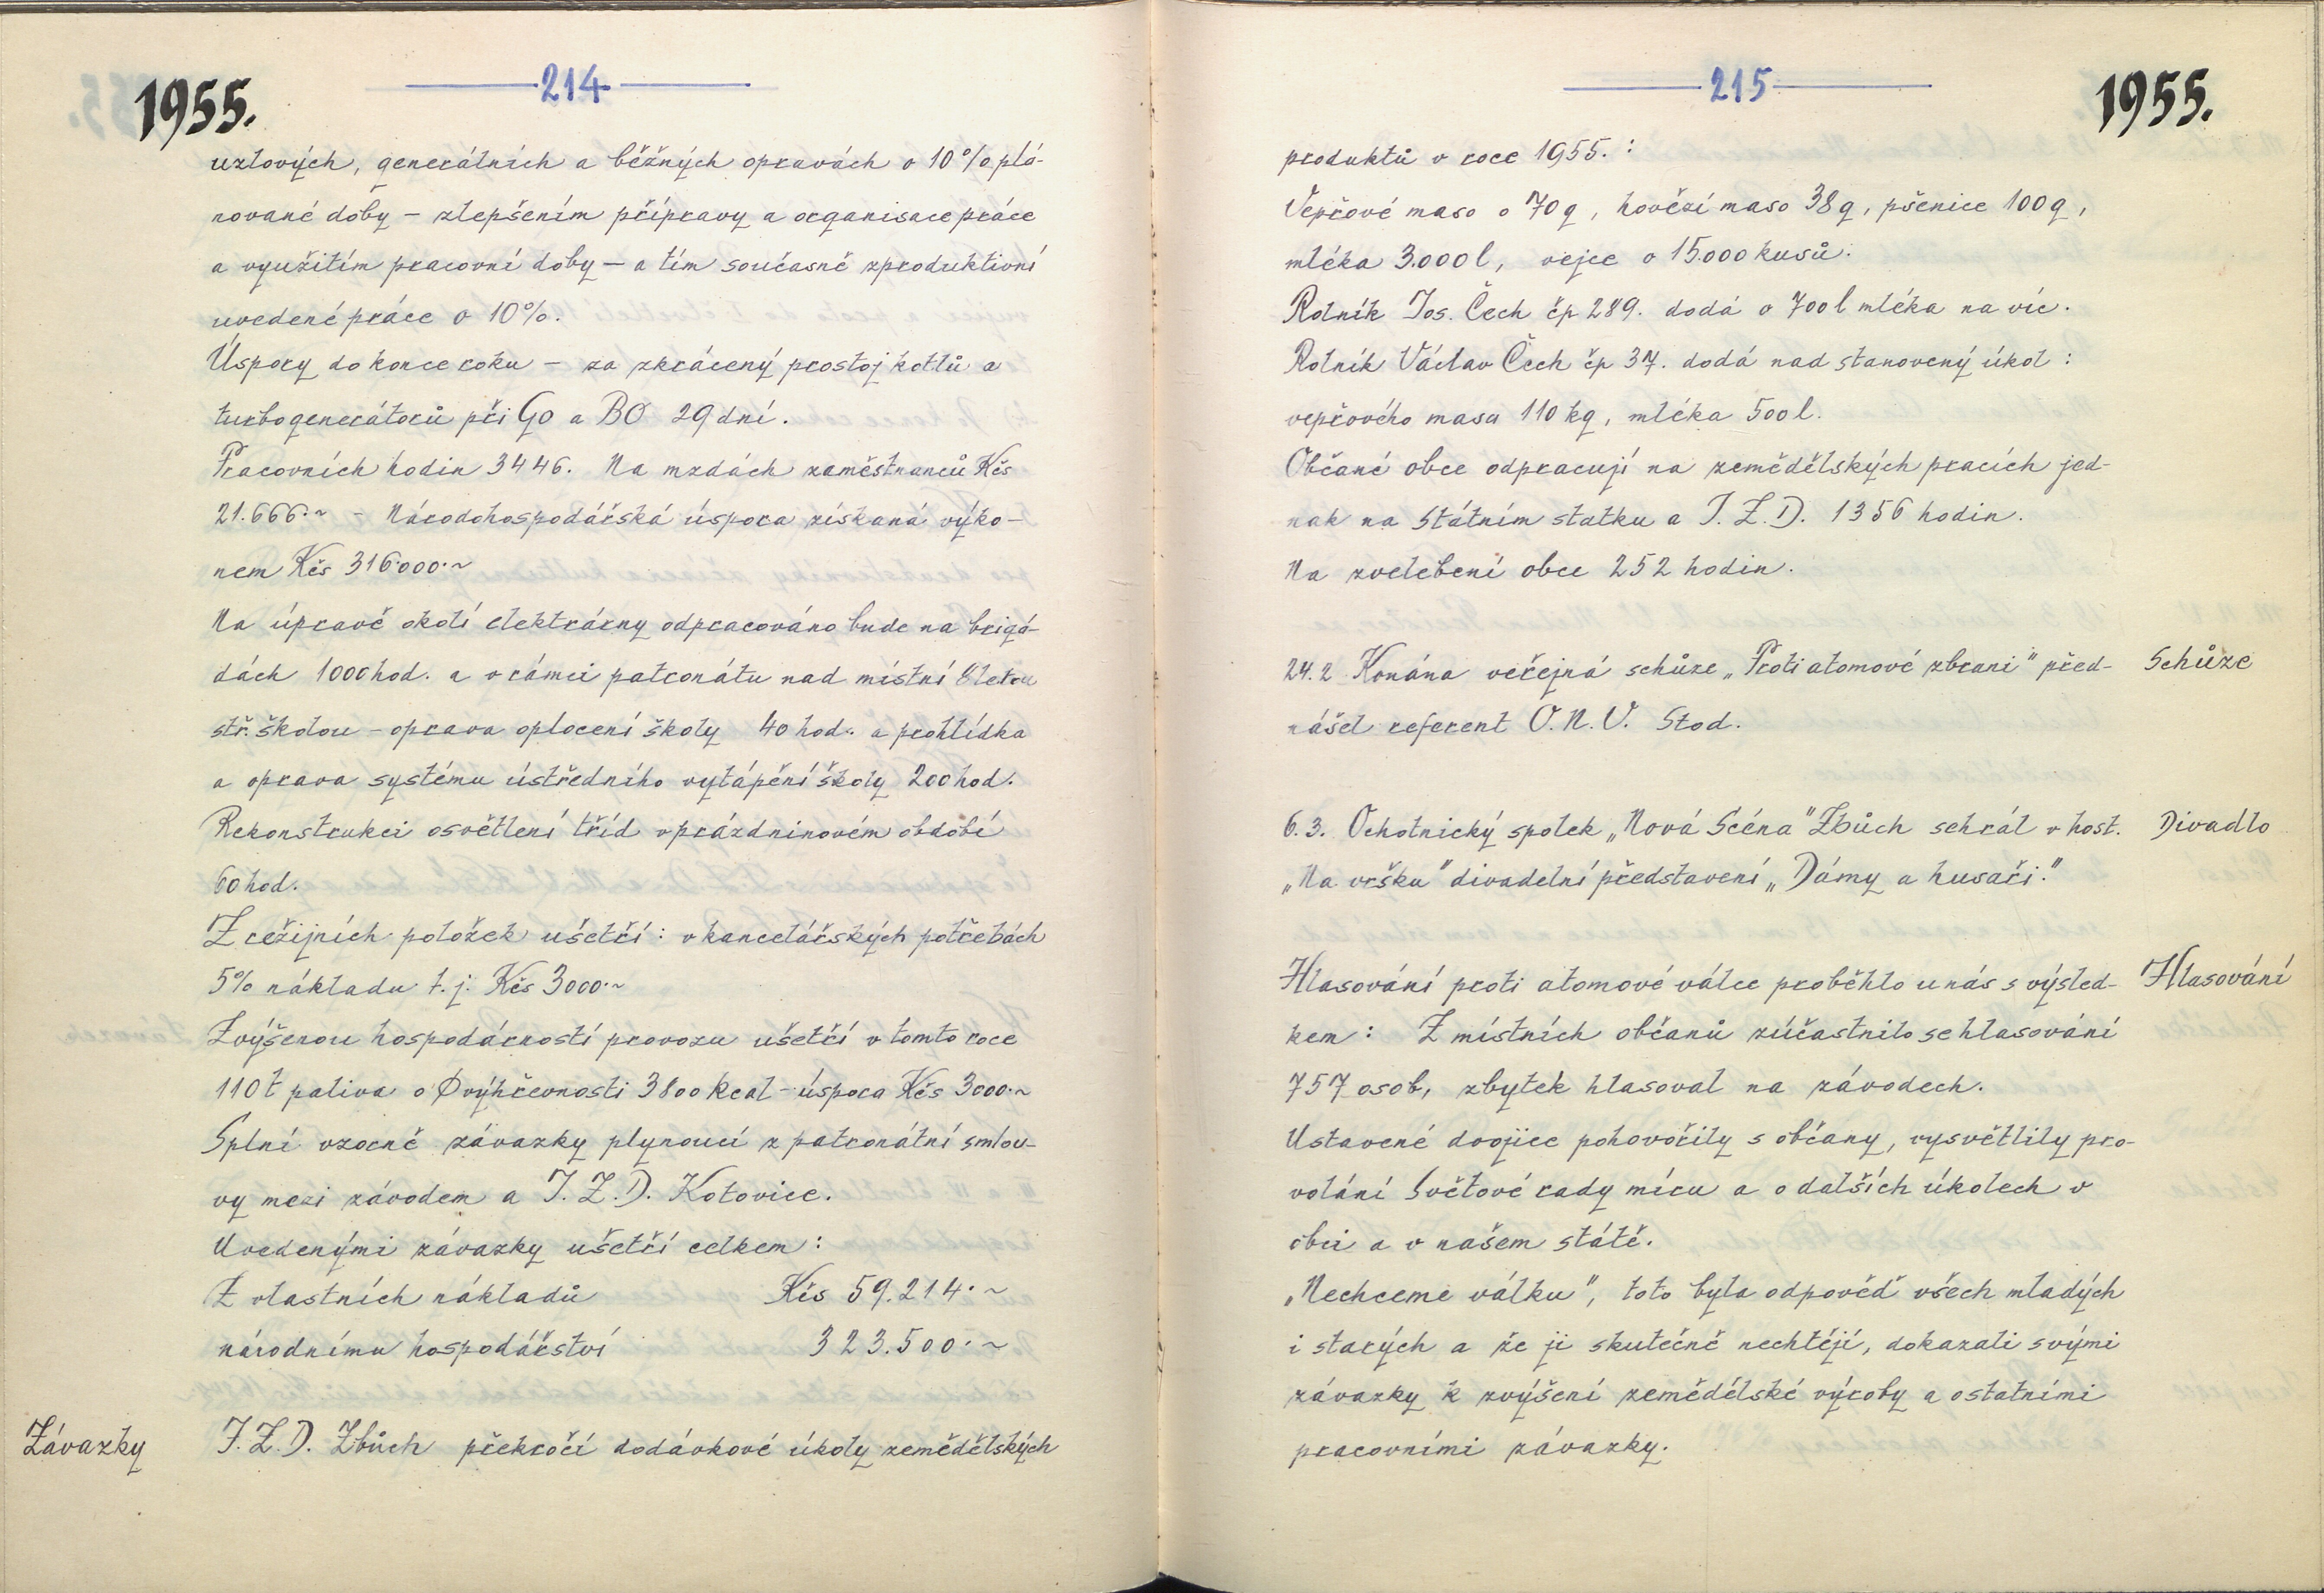 1955.
214
uzlových, generálních a běžných opravách o 10% plá-
nované doby – zlepšením přípravy a organisace práce
a využitím pracovní doby – a tím současně zproduktivní
uvedené práce o 10%.
Úspory do konce roku – za zkrácený prostoj kotlů a
turbogenerátorů při GO a BO 29 dní.
Pracovních hodin 3446. Na mzdách zaměstnanců Kčs
21.666.~ – Národohospodářská úspora získaná výko-
nem Kčs 316.000.~
Na úpravě okolí elektrárny odpracováno bude na brigá-
dách 1000 hod. a v rámci patronátu nad místní 8letou
stř. školou – oprava oplocení školy 40 hod. a prohlídka
a oprava systému ústředního vytápění školy 200 hod.
Rekonstrukci osvětlení tříd v prázdninovém období
60 hod.
Z režijních položek ušetří: v kancelářských potřebách
5% nákladu t.j. Kčs 3000.~
Zvýšenou hospodárností provozu ušetří v tomto roce
110 t paliva o Ø výhřevnosti 3800 kcal – úspora Kčs 3000.~
Splní vzorně závazky plynoucí z patronátní smlou-
vy mezi závodem a J.Z.D. Kotovice.
Uvedenými závazky ušetří celkem:
Z vlastních nákladů Kčs 59.214.~
národnímu hospodářství 323.500.~
Závazky J.Z.D. Zbůch překročí dodávkové úkoly zemědělských
215
1955.
produktů v roce 1955.:
Vepřové maso o 70 q, hovězí maso 38 q, pšenice 100 q,
mléka 3.000 l, vejce o 15.000 kusů.
Rolník Jos. Čech čp 289. dodá o 700 l mléka na víc.
Rolník Václav Čech čp 37. dodá nad stanovený úkol:
vepřového masa 110 kg, mléka 500 l.
Občané obce odpracují na zemědělských pracích jed-
nak na Státním statku a J.Z.D. 1356 hodin.
Na zvelebení obce 252 hodin.
24.2 Konána veřejná schůze „Proti atomové zbrani" před- Schůze
nášel referent O.N.V. Stod.
6.3. Ochotnický spolek „Nová Scéna" Zbůch sehrál v host. Divadlo
„Na vršku" divadelní představení „Dámy a husaři."
Hlasování proti atomové válce proběhlo u nás s výsled- Hlasování
kem: Z místních občanů zúčastnilo se hlasování
757 osob, zbytek hlasoval na závodech.
Ustavené dvojice pohovořily s občany, vysvětlily pro-
volání Světové rady míru a o dalších úkolech v
obci a v našem státě.
„Nechceme válku", toto byla odpověď všech mladých
i starých a že ji skutečně nechtějí, dokazali svými
závazky k zvýšení zemědělské výroby a ostatními
pracovními závazky.